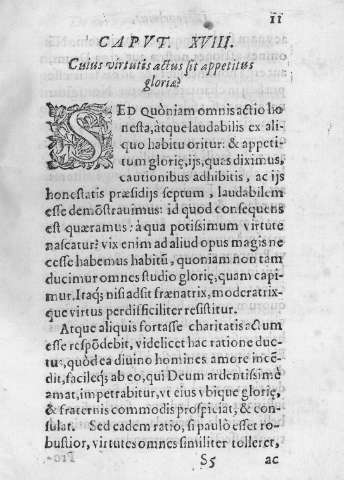 11
CAPVT. XVIII.
Cuius virtutis actus sit appetitus
gloriæ?
SED Quòniam omnis actio ho
nesta, atque laudabilis ex ali-
quo habitu oritur: & appeti-
tum glorię, ijs, quas diximus,
cautionibus adhibitis, ac ijs
honestatis præsidijs septum, laudabilem
esse demõstrauimus: id quod consequens
est quæramus: à qua potissimum virtute
nascatur? vix enim ad aliud opus magis ne
cesse habemus habitũ, quoniam non tam
ducimur omnes studio glorię, quam capi-
mur. Itaq; nisi adsit frænatrix, moderatrix-
que virtus perdifficiliter resistitur.
Atque aliquis fortasse charitatis actum
esse respõdebit, videlicet hac ratione duc-
tus, quòd ea diuino homines amore incẽ-
dit, facileq; ab eo, qui Deum ardentissimè
amat, impetrabitur, vt eius vbique glorię,
& fraternis commodis prospiciat, & con-
sulat. Sed eadem ratio, si paulò esset ro-
bustior, virtutes omnes similiter tolleret,
S5 ac